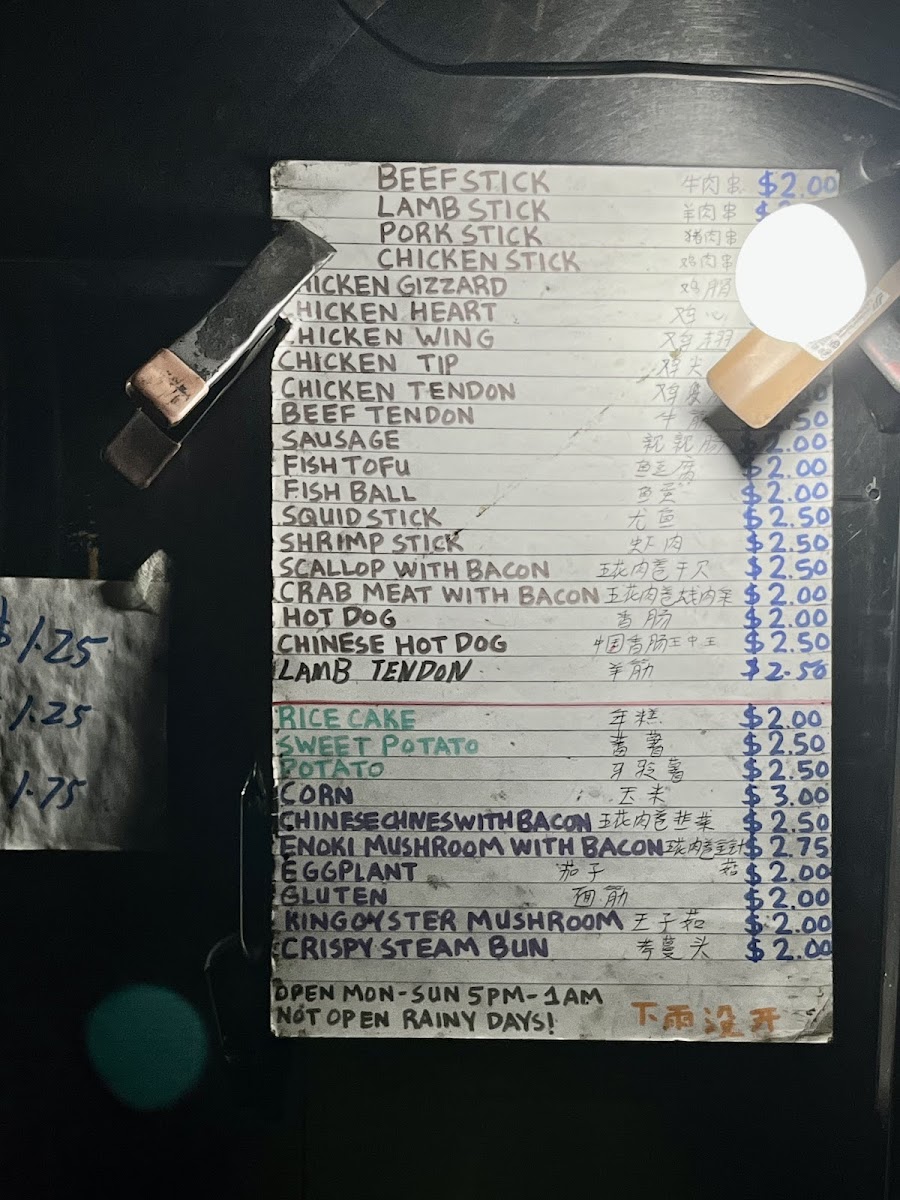 BEEF STICK 牛肉串 $2.00
LAMB STICK 羊肉串
PORK STICK 猪肉串
CHICKEN STICK 鸡肉串
HICKEN GIZZARD 鸡
HICKEN HEART 鸡心
CHICKEN WING 鸡翅
CHICKEN TIP 鸡尖
CHICKEN TENDON 鸡
BEEF TENDON 牛 .50
SAUSAGE 親親腸 2.00
FISH TOFU 鱼豆腐 $2.00
FISH BALL 鱼蛋 $2.00
SQUID STICK 尤鱼 $2.50
SHRIMP STICK 虾肉 $2.50
SCALLOP WITH BACON 五花肉卷干贝 $2.50
CRAB MEAT WITH BACON 五花肉卷 $2.00
HOT DOG 香肠 $2.00
CHINESE HOT DOG 中国香肠王中王 $2.50
LAMB TENDON 羊筋 $2.50
RICE CAKE 年糕 $2.00
SWEET POTATO 蕃薯 $2.50
POTATO 薯 $2.50
CORN 玉米 $3.00
CHINESE CHIVES WITH BACON 五花肉卷韭菜 $2.50
ENOKI MUSHROOM WITH BACON 五花肉卷金针菇 $2.75
EGGPLANT 茄子 $2.00
GLUTEN 面筋 $2.00
KING OYSTER MUSHROOM 王子菇 $2.00
CRISPY STEAM BUN 头 $2.00
OPEN MON-SUN 5PM-1AM
NOT OPEN RAINY DAYS! 下雨没开
$1.25
1.25
1.75